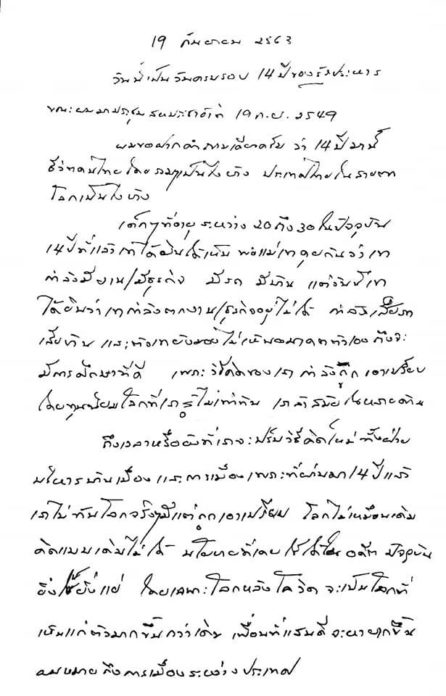 19 กันยายน 2563
วันนี้เป็นวันครบรอบ 14 ปีของรัฐประหาร
ขณะผมมาประชุมสหประชาชาติ 19 ก.ย. 2549
ผมขอฝากคำถามเดียวครับ ว่า 14 ปีมานี้
ชีวิตคนไทยโดยรวมๆเป็นไงบ้าง ประเทศไทยในสายตา
โลกเป็นไงบ้าง
เด็กๆที่อายุระหว่าง 20 ถึง 30 ในปัจจุบัน
14 ปีที่แล้วเขาได้ยินได้เห็น พ่อแม่เขาคุยกันว่าเขา
กำลังมีงาน/มีธุรกิจ มีรถ มีบ้าน แต่วันนี้เขา
ได้ยินว่าเขากำลังตกงาน/ธุรกิจอยู่ไม่ได้ กำลังเสียรถ
เสียบ้าน และตัวเขายังมองไม่เห็นอนาคตตัวเอง ถึงจะ
มีการศึกษาที่ดี เพราะวิธีคิดของเรา กำลังถูกเอาเปรียบ
โดยทุนนิยมโลกที่เรารู้ไม่เท่าทัน เราล้าสมัยในหลายด้าน
ถึงเวลาหรือยังที่เราจะปรับวิธีคิดใหม่ทั้งฝ่าย
บริหารบ้านเมือง และการเมือง เพราะที่ผ่านมา 14 ปีแล้ว
เราไม่ทันโลกจริงๆมีแต่ถูกเอาเปรียบ โลกไม่เหมือนเดิม
คิดแบบเดิมไม่ได้ นโยบายที่เคยใช้ได้ในอดีต ปัจจุบัน
ยิ่งใช้ยิ่งแย่ โดยเฉพาะโลกหลังโควิด จะเป็นโลกที่
เห็นแก่ตัวมากขึ้นกว่าเดิม เพื่อนที่แสนดีจะหายากขึ้น
ผมหมายถึงการเมืองระหว่างประเทศ